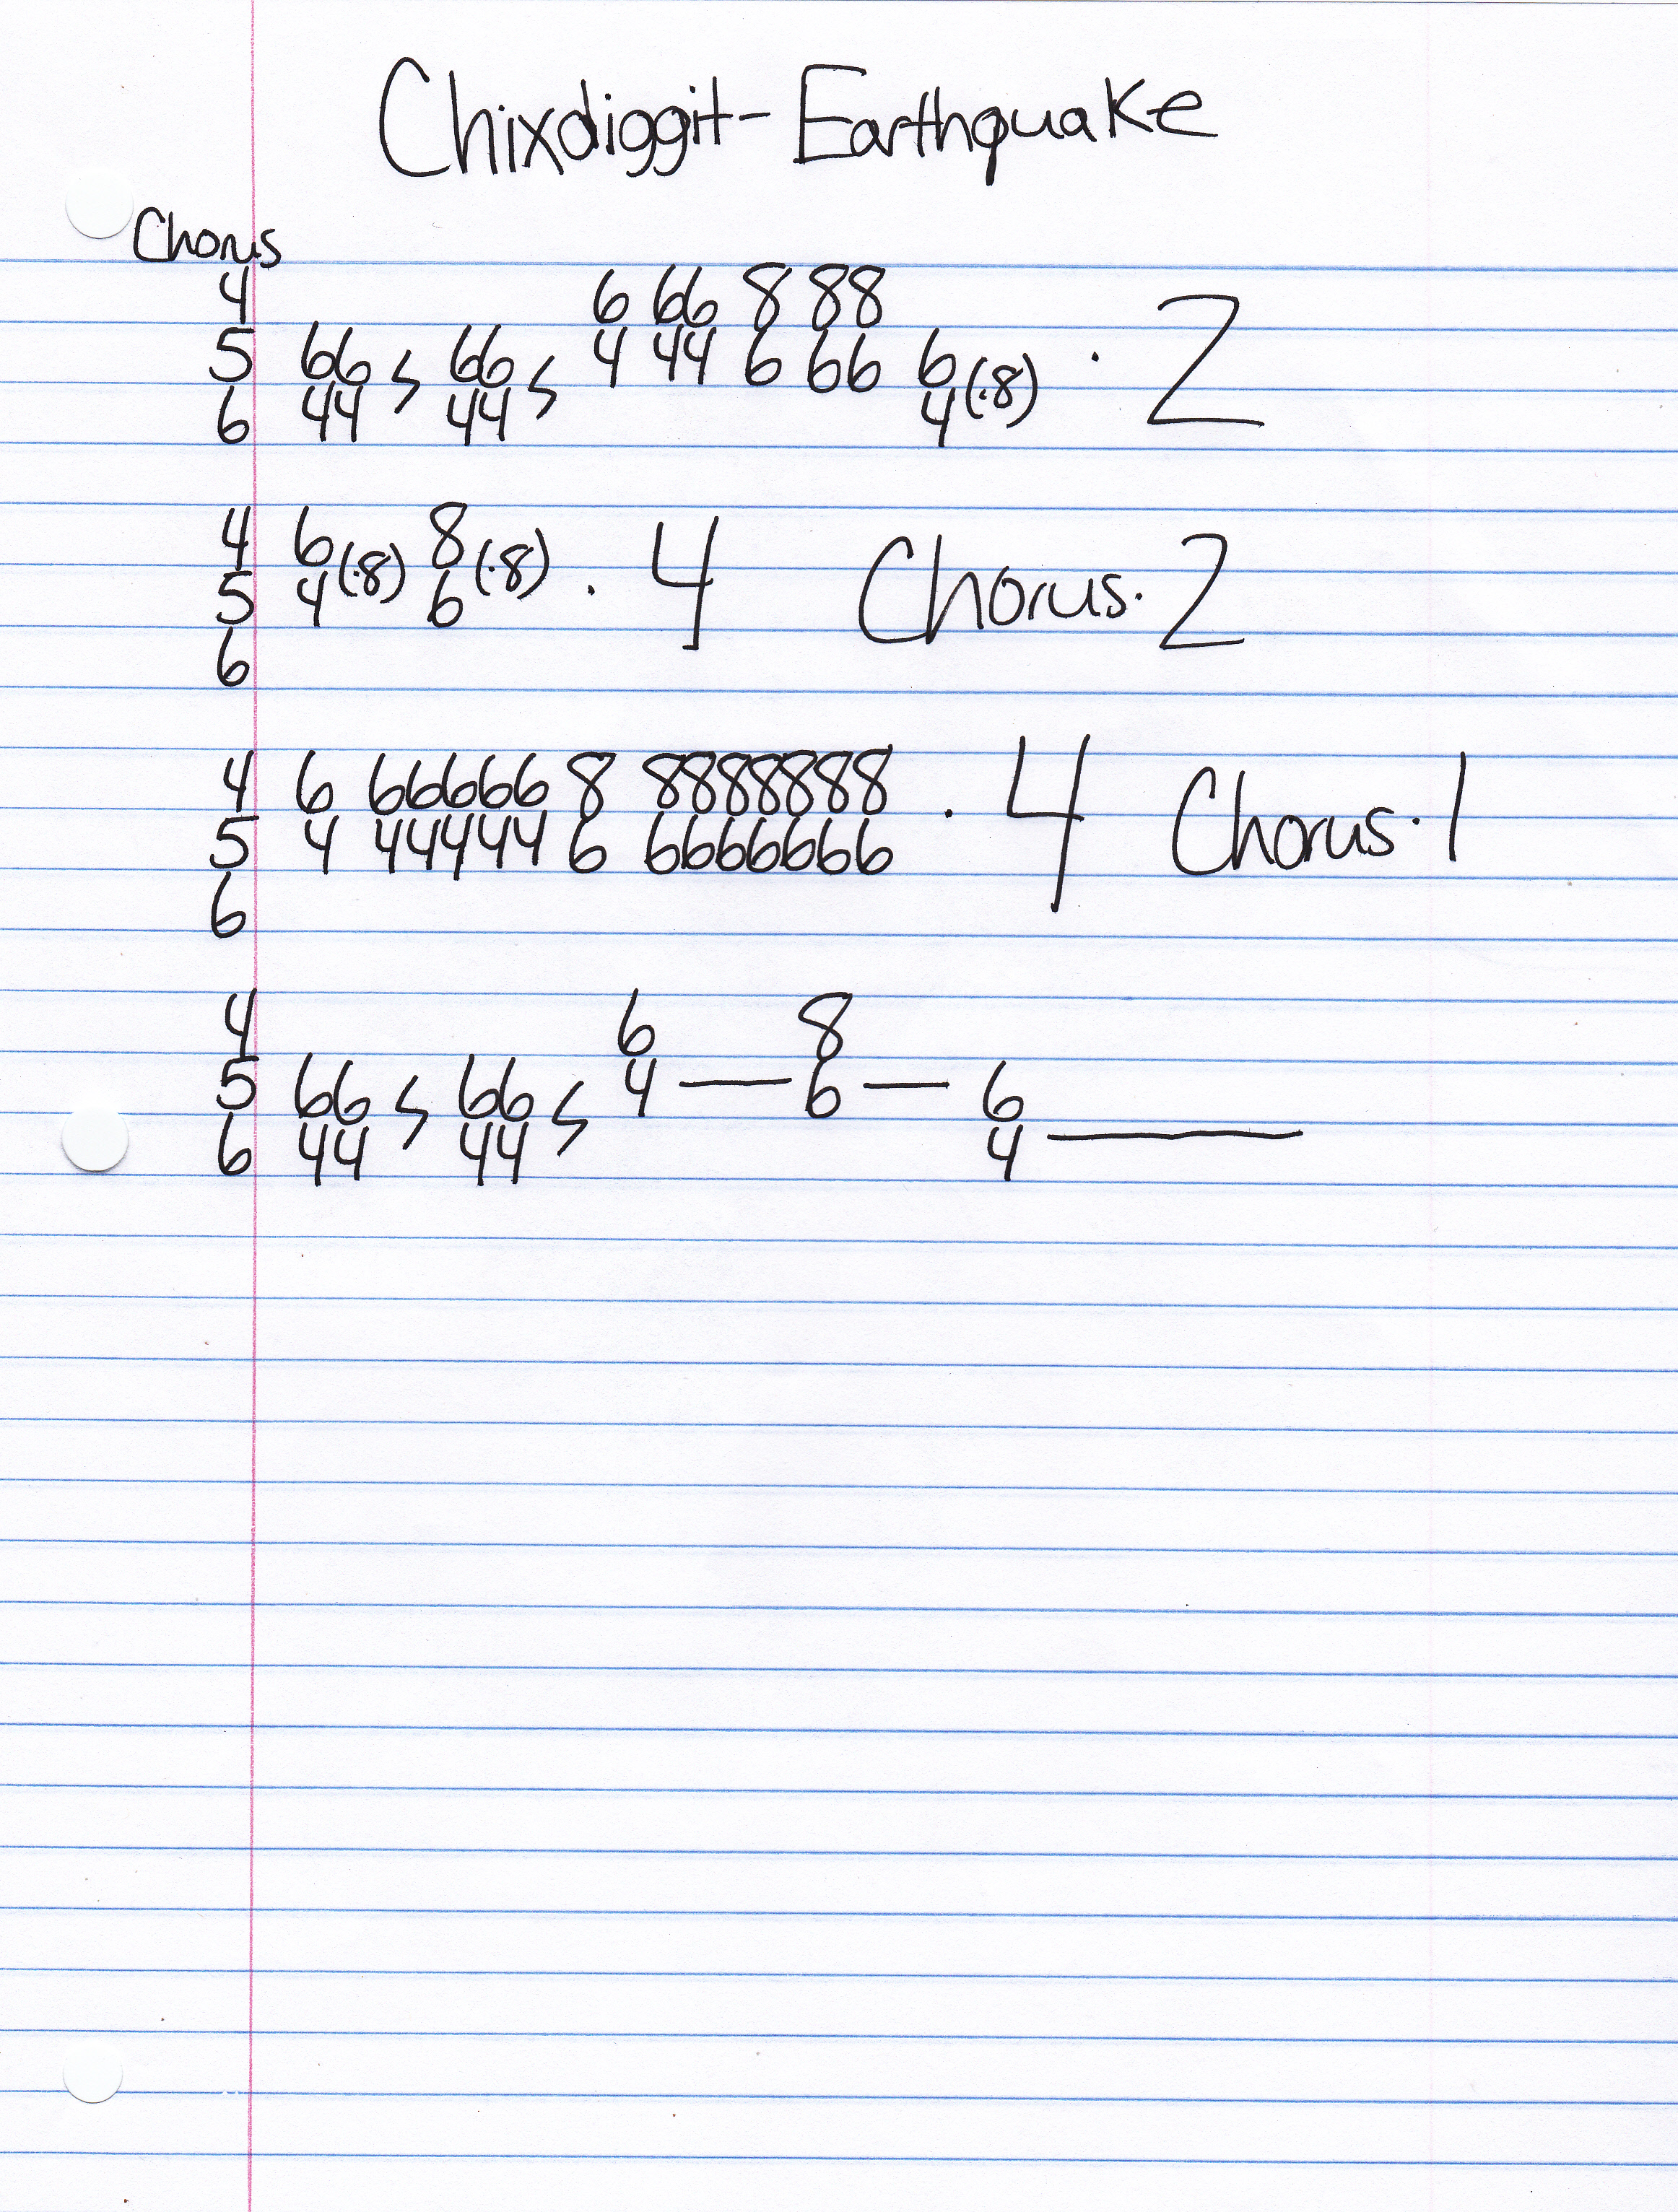 Chixdiggit - Earthquake
Chorus
4 6 66 8 88
5 66 66 4 44 6 66 6 · 2
6 44 44 4 (·8)
4 6 (·8) 8 (·8) · 4 Chorus · 2
5 4 6
6
4 6 66666 8 8888888 · 4 Chorus · 1
5 4 44444 6 6666666
6
4 6 8
5 66 66 4 — 6 — 6
6 44 44 4 —